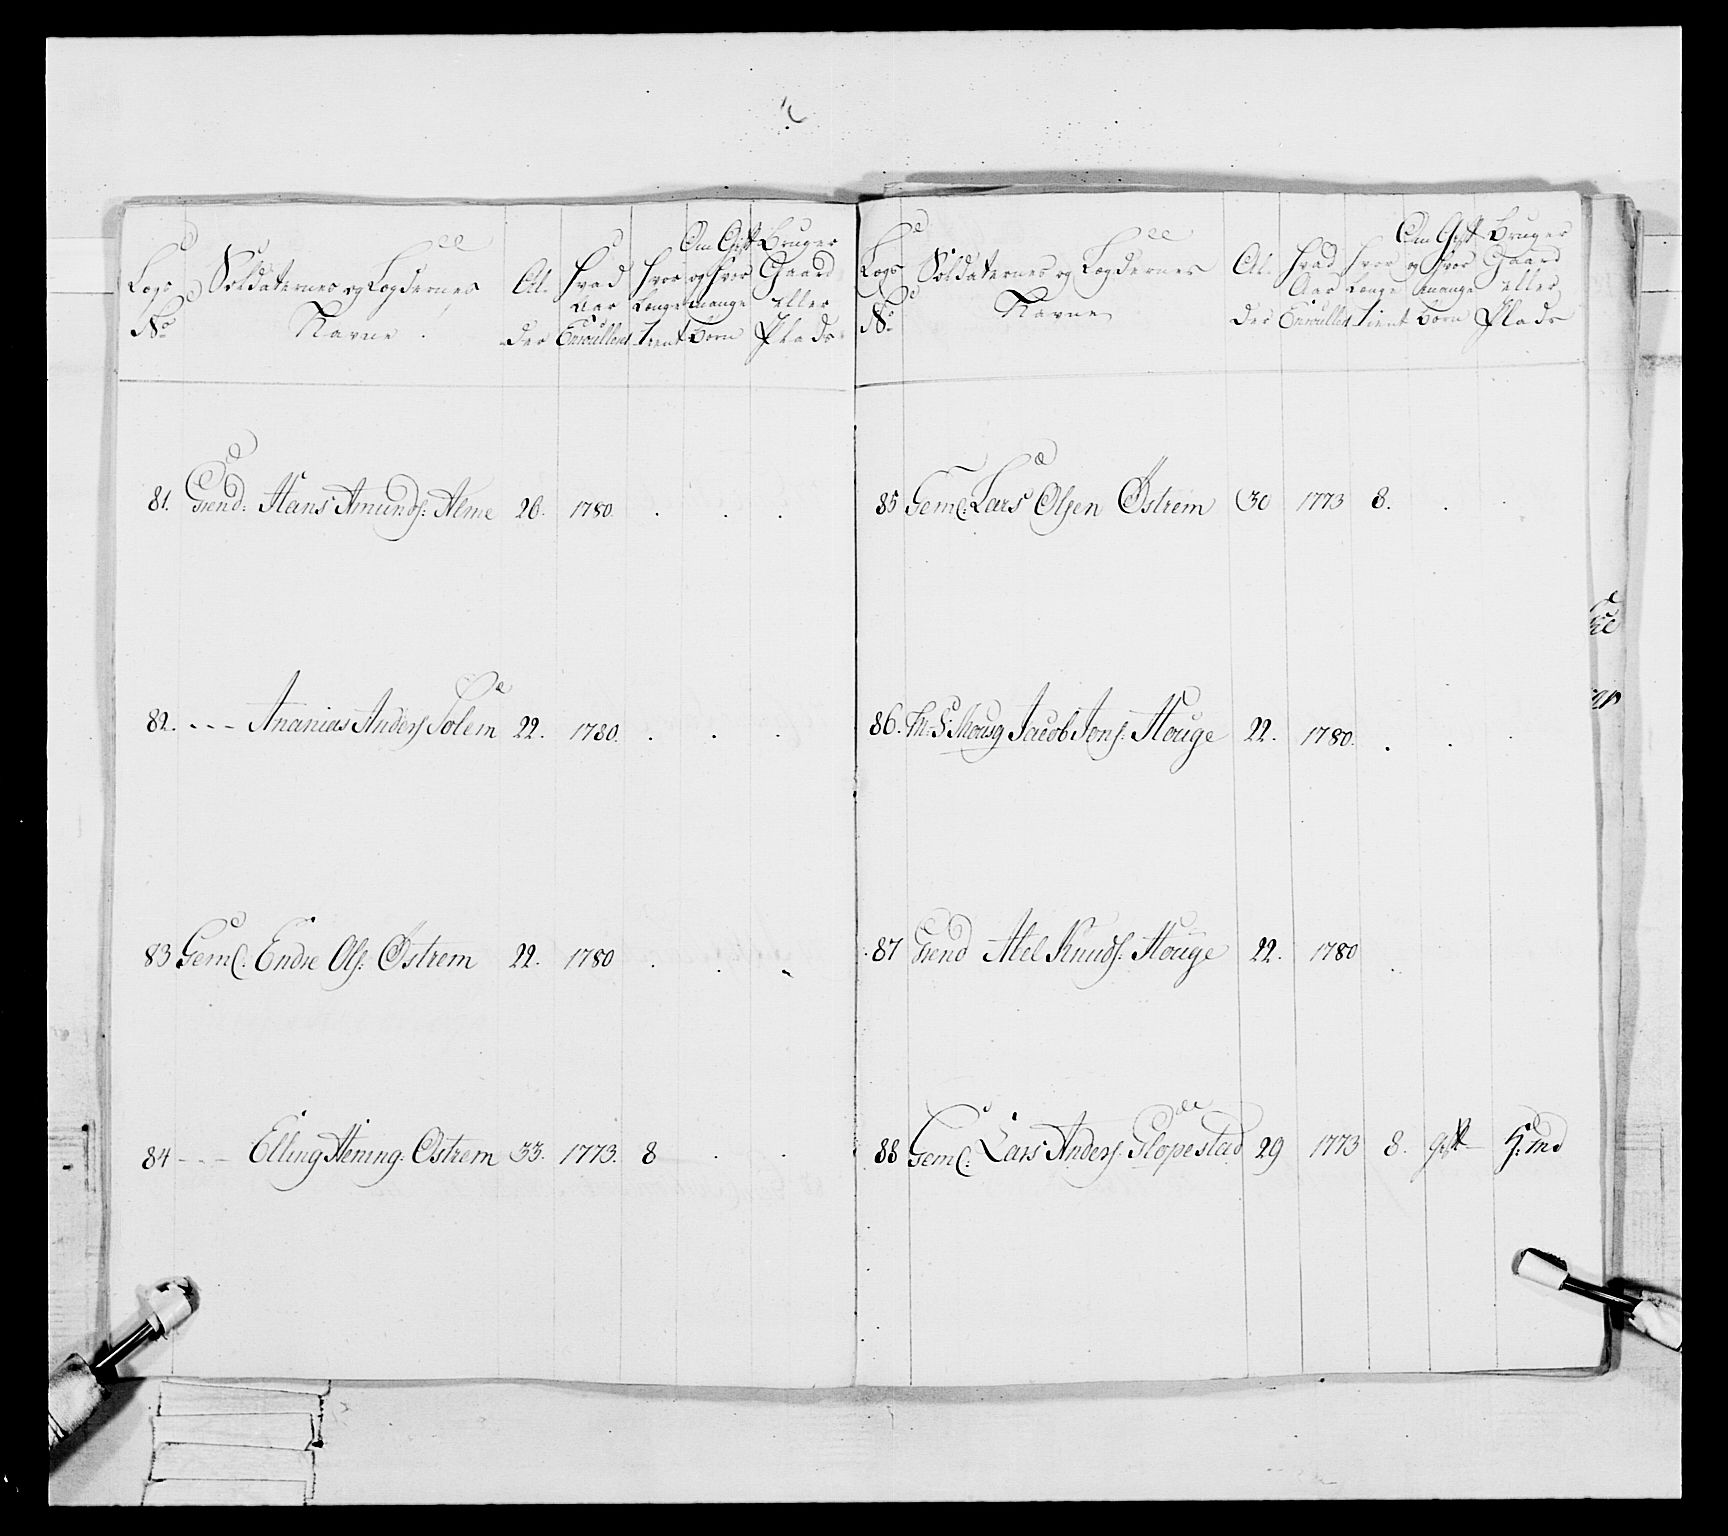 Lægs No Soldaternes og Lægdernes Navne. Al-der Hvad Aar Enroullert Hvor Længe tient Om Gift og Hvor mange Børn Bruger Gaard eller Plads
81. Grend: Hans Amunds: Alme 26. 1780.
82. - - - Ananias Anders Solem 22. 1780.
83 Gem: Endre Ols: Østrem 22. 1780
84 - - - Elling Hening: Østrem 33. 1773. 8
Lægs No Soldaternes og Lægdernes Navne Al-der Hvad Aar Enroullert Hvor Længe tient Om Gift og Hvor mange Børn Bruger Gaard eller Plads
85 Gem: Lars Olsen Østrem 30 1773 8.
86. Jacob Jons: Houge 22. 1780.
87 Grend Abel Knuds: Houge 22. 1780
88 Gem: Lars Anders: Slopestad 29 1773 8. Gift H:md